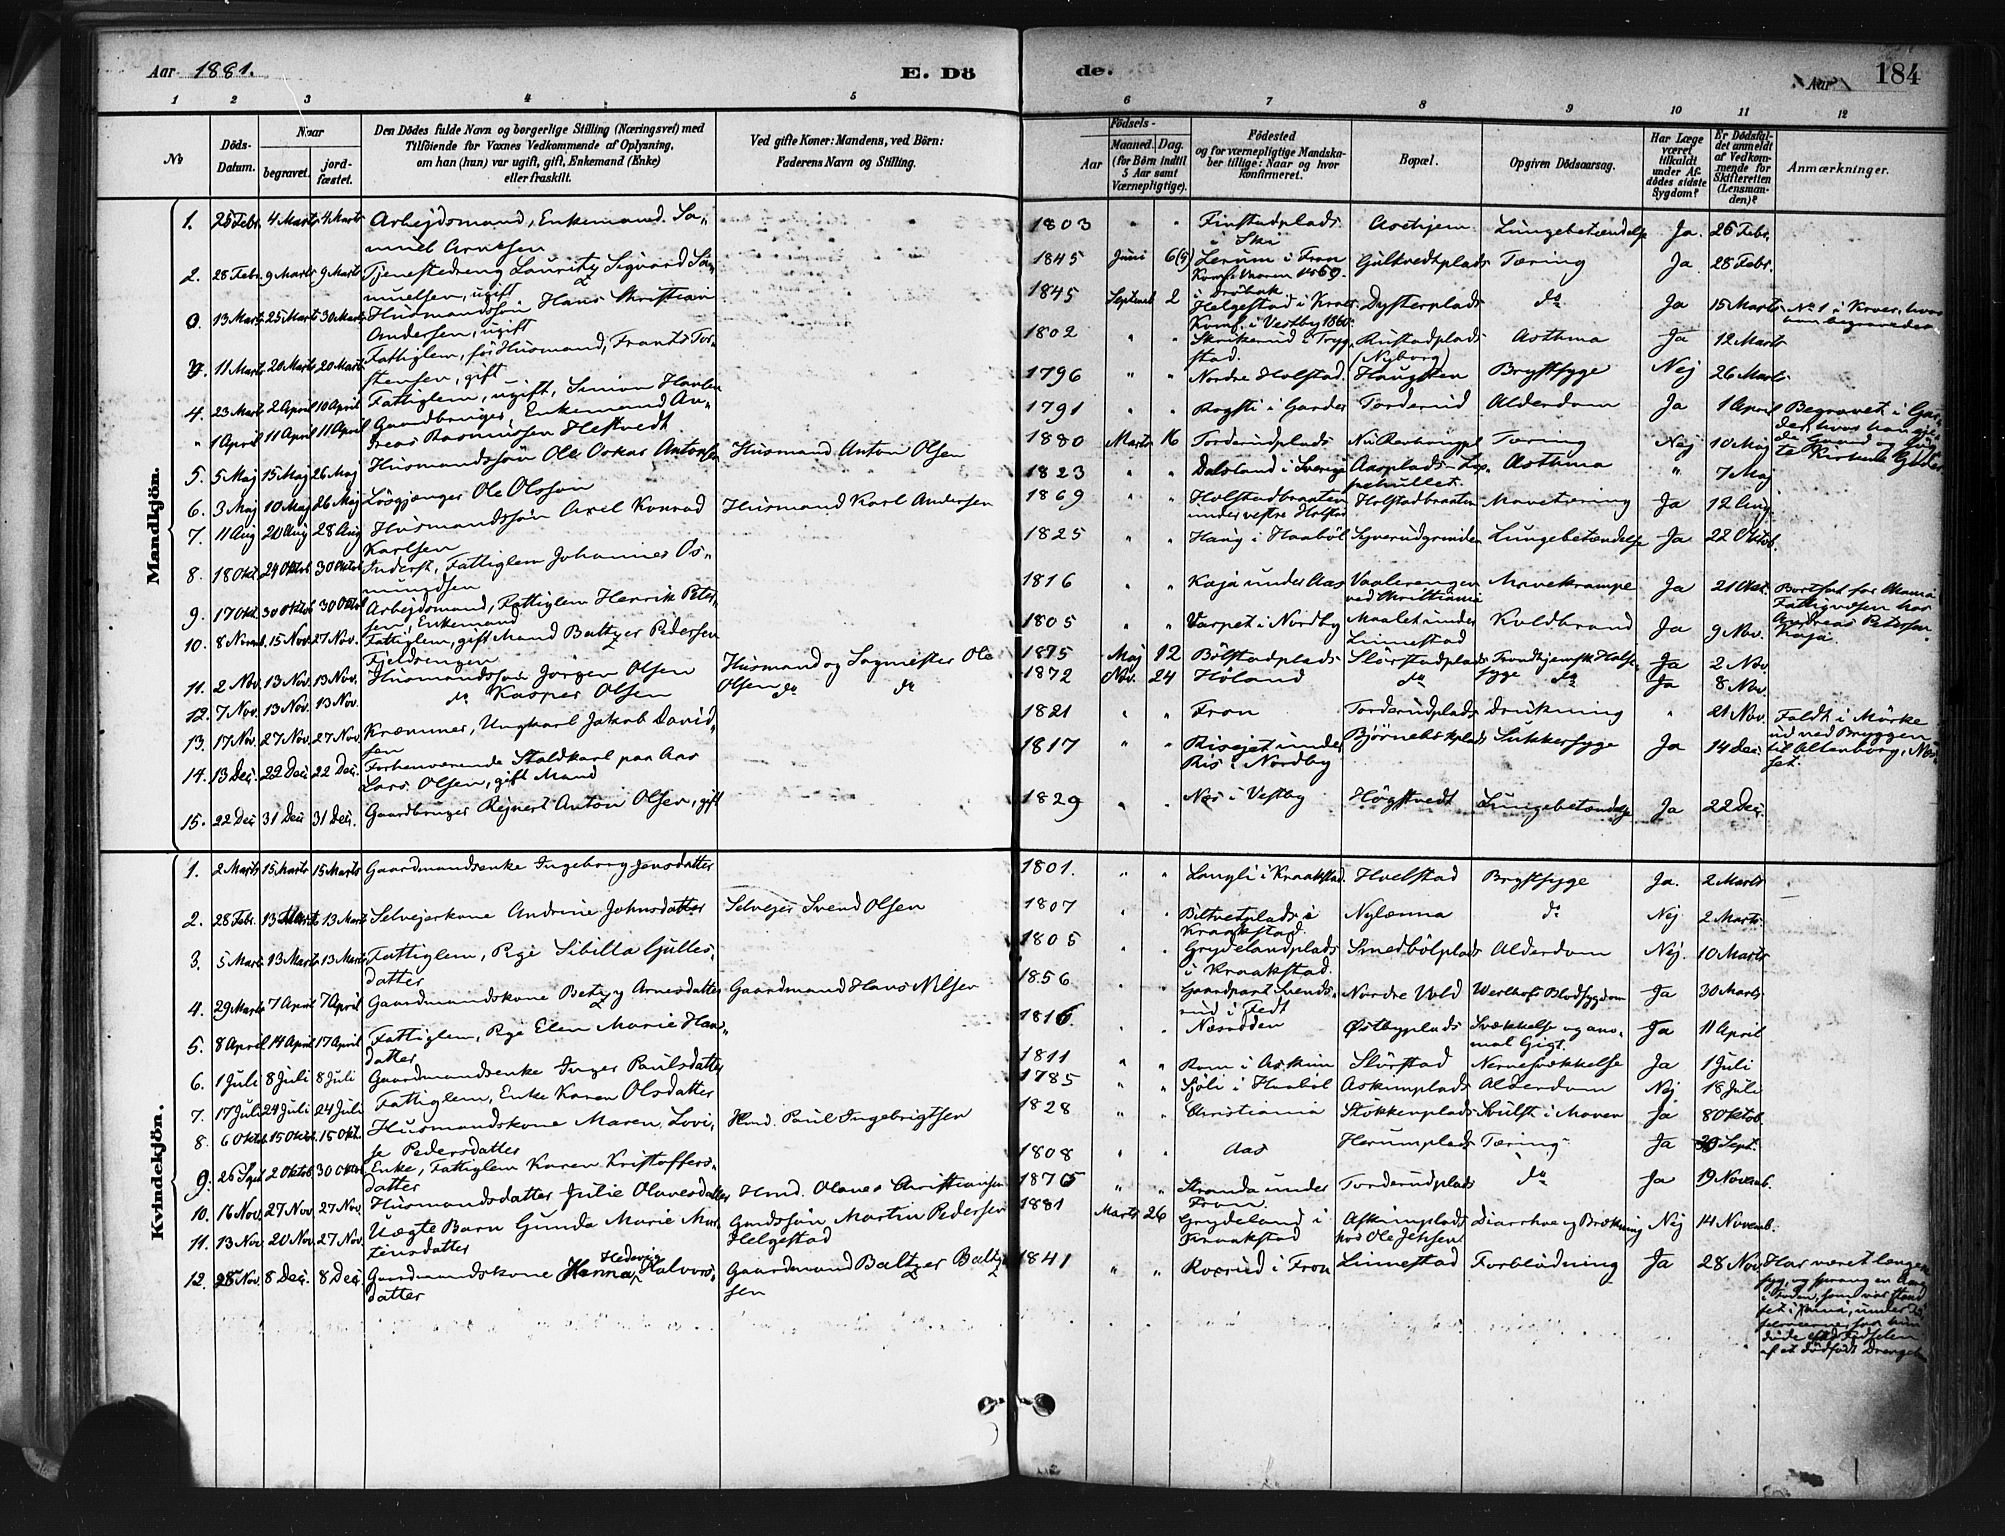 Aar 1881.
E. Dö
de.
Aar
184
1 2 3 4 5 6 7 8 9 10 11 12
No
Döds-Datum.
Naar
begravet.
jord-fæstet.
Den Dödes fulde Navn og borgerlige Stilling (Næringsvei) med
Tilföiende for Voxnes Vedkommende af Oplysning,
om han (hun) var ugift, gift, Enkemand (Enke)
eller fraskilt.
Ved gifte Koner: Mandens, ved Börn:
Faderens Navn og Stilling.
Födsels-
Aar
Maaned. Dag.
(for Börn indtil
5 Aar samt
Værnepligtige).
Födested
og for værnepligtige Mandska-
ber tillige: Naar og hvor
konfirmeret.
Bopæl.
Opgiven Dödsaarsag.
Har Læge
været
tilkaldt
under Af-
dödes sidste
Sygdom?
Er Dödsfal-
det anmeldt
af Vedkom-
mende for
Skifteretten
(Lensman-
den)?
Anmærkninger.
Mandkjön.
1. 25 Febr. 4 Marts 4 Marts Arbejdsmand, Enkemand Sa-
muel Arntsen 1803 " " Finstadplads
i Ski Aschjem Lungebetændelse Ja. 26 Febr.
2. 28 Febr. 9 Marts 9 Marts Tjenestedreng Lauritz Sigvard Sa-
muelsen, ugift 1845 Juni 6(5) Lerum i Fron
Konf. 1859
i Drøbak Gulkvedtplads Tæring Ja. 28 Febr.
0. 13 Marts 25 Marts 30 Marts Husmandssön Hans Kristian
Andersen, ugift 1845 Septemb 2 Helgestad i Kraakst.
Konf. i Vestby 1860. Dysterplads do Ja 15 Marts No 1 i Kroer, hvor
han begravedes
3. 11 Marts 20 Marts 20 Marts Fattiglem, för Husmand, Frants Tor-
stensen, gift 1802 " " Skrikerud i Tryg-
stad. Rustadplads
(Nyborg) Asthma Ja 12 Marts
4. 23 Marts 2 April 10 April Fattiglem, ugift, Simon 1796 " " Nordre Holstad. Haugsten Brystsyge Nej 26 Marts
" 1 April 11 April 11 April Gaardbruger, Enkemand An-
dreas Rasmussen Hekvedt. 1791 " " Rogsti i Garder Torderud Alderdom Ja 1 April Begravet i Gar-
der, hvor han ejede
Gaard
5. 5 Maj 15 Maj 26 Maj Husmandssön Ole Oskar Antonsen Husmand Anton Olsen 1880 Marts 16 Torderudplads Tæring Nej 10 Maj
6. 3 Maj 10 Maj 26 Maj Lösgjænger Ole Olsson 1823 " " Dalsland i Sverige Aasplads Asthma " 7 Maj
7. 11 Aug 20 Aug 28 Aug Husmandssön Axel Konrad
Karlsen Husmand Karl Andersen 1869 " " Holstadbraaten
under vestre Holstad Holstadbraaten Mavetæring Ja 12 Aug.
8. 18 Okt 24 Oktob 30 Oktob Inderst, Fattiglem Johannes Os-
mundsen 1825 " " Haug i Haaböl Syverudgrinden Lungebetændelse Ja 22 Oktob.
9. 17 Okt. 30 Oktob 30 Oktob Arbejdsmand, Fattiglem Henrik Peter-
sen, Enkemand 1816 " " Kaja under Aas Vaalerengen
ved Christiania Mavekrampe Ja 21 Okt. Bortsat for Aas
Fattigvæsen hos
Andreas Petersen
Kaja.
10. 8 Novemb. 15 Nov. 27 Nov. Fattiglem, gift Mand Baltzer Pedersen
Fjeldsengen 1805 " " Varpet i Nordby Maalet under
Linnestad Koldbrand Ja 9 Nov.
11. 2 Nov. 13 Nov. 13 Nov. Husmandssön Jörgen Olsen Husmand og Sagmester Ole
Olsen 1875 Maj 12 Bölstadplads Slörstadplads Trondhjemsk Hals-
syge Ja 2 Nov.
12. 7 Nov. 13 Nov. 13 Nov. do Kasper Olsen do do 1872 Nov. 24 Höland do do Ja 8 Nov.
13. 17 Nov. 27 Nov. 27 Nov. Kræmmer, Ungkarl Jakob David-
sen 1821 " " Fron Torderudplads Drukning " 21 Nov. Faldt i Mörke
ud ved Bryggen
til Altenborg, Mos-
set.
14. 13 Dec. 22 Dec. 22 Dec. Forhenværende Staldkarl paa Aas
Lars Olsen, gift Mand 1817 " " Risejet under
Ris i Nordby Björnebækplads Sukkersyge Ja 14 Dec.
15. 22 Dec. 31 Dec 31 Dec. Gaardbruger Rejnert Anton Olsen, gift 1829 " " Næs i Vestby Högstvedt Lungebetændelse Ja 22 Dec.
Kvindekjön.
1. 2 Marts 15 Marts 15 Marts Gaardmandsenke Ingeborg Jensdatter 1801. " " Langli i Kraakstad. Hvelstad Brystsyge Ja. 2 Marts
2. 28 Febr. 13 Marts 13 Marts Selvejerkone Andrine Johnsdatter Selvejer Svend Olsen 1807 " " Biltvetplads i
Kraakstad. Nylænna do Nej 2 Marts
3. 5 Marts 13 Marts 13 Marts Fattiglem, Pge Sibilla Gulles-
datter 1805 " " Grydelandplads
i Kraakstad. Smedbölplads Alderdom Nej. 10 Marts
4. 29 Marts 7 April 7 April Gaardmandskone Betzy Arnesdatter Gaardmand Hans Nilsen 1856 " " Gaardpart Svends-
rud i Fedt Nordre Vold Werlhofs Blodsygdom Ja 30 Marts
5. 8 April 14 April 17 April Fattiglem, Pge Elen Marie Hans-
datter 1816. " " Næsodden Østbyplads Svækkelse og ano-
mal Gigt. Ja 11 April
6. 1 Juli 8 Juli 8 Juli Gaardmandsenke Inger Paulsdatter 1811 " " Rom i Askim Slörstad Nervesvækkelse Ja 1 Juli
7. 17 Juli 24 Juli 24 Juli Fattiglem, Enke Karen Olsdatter 1785 " " Sjöli i Haaböl Askimplads Alderdom Nej 18 Juli
8. 6 Oktob. 15 Oktob. 15 Okt. Husmandskone Maren Lovi-
se Pedersdatter Hmd. Paul Ingebrigtsen 1828 " " Christiania Stökkenplads Svulst i Maven Ja 8 Oktob.
9. 26 Sept 2 Oktob. 30 Oktob. Enke, Fattiglem Karen Kristoffers-
datter 1808 " " Aas Herumplads Tæring Ja 30 Sept.
10. 16 Nov. 27 Nov. 27 Nov. Husmandsdatter Julie Olavesdatter Hmd. Olaves Christiansen 1876 " " Stranda under
Fron. Torderudplads do Ja 19 Novemb.
11. 13 Nov. 20 Nov. 27 Nov. Uægte Barn Gunda Marie Mar-
tensdatter Gmdssön Martin Pedersen
Helgestad 1881 Marts 26 Grydeland i
Kraakstad Askimplads
hos Ole Jensen Diarrhoe og Brækning Nej 14 Novemb.
12. 28 Nov. 8 Dec. 8 Dec Gaardmandskone Hanna Hedevig Halvors-
datter Gaardmand Baltzer Baltzer-
sen 1841 " " Roxrud i Fron Linnestad Forblödning Ja 28 Nov. Har været længe
syg, og sprang en Aare
i Foden, som var stand-
set, under
hun
döde ved Födselen
af et dödfödt Drengebarn